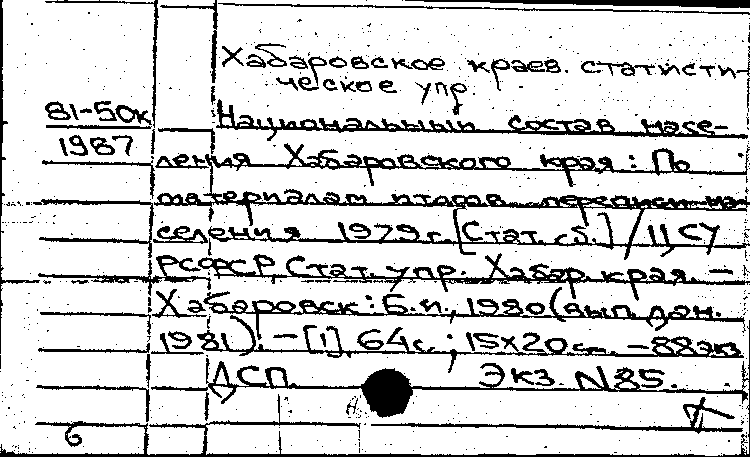 Хабаровское краев. статисти-
ческое упр.
81-50к Национальный состав насе-
1987 ления Хабаровского края: По
материалам итогов переписи на-
селения 1979 г. [Стат. сб.] / ЦСУ
РСФСР, Стат. упр. Хабар. края. –
Хабаровск: Б.и., 1980 (вып. дан.
1981). – [1], 64 с.; 15x20 см. – 88 экз
ДСП. Экз. N 85.
6